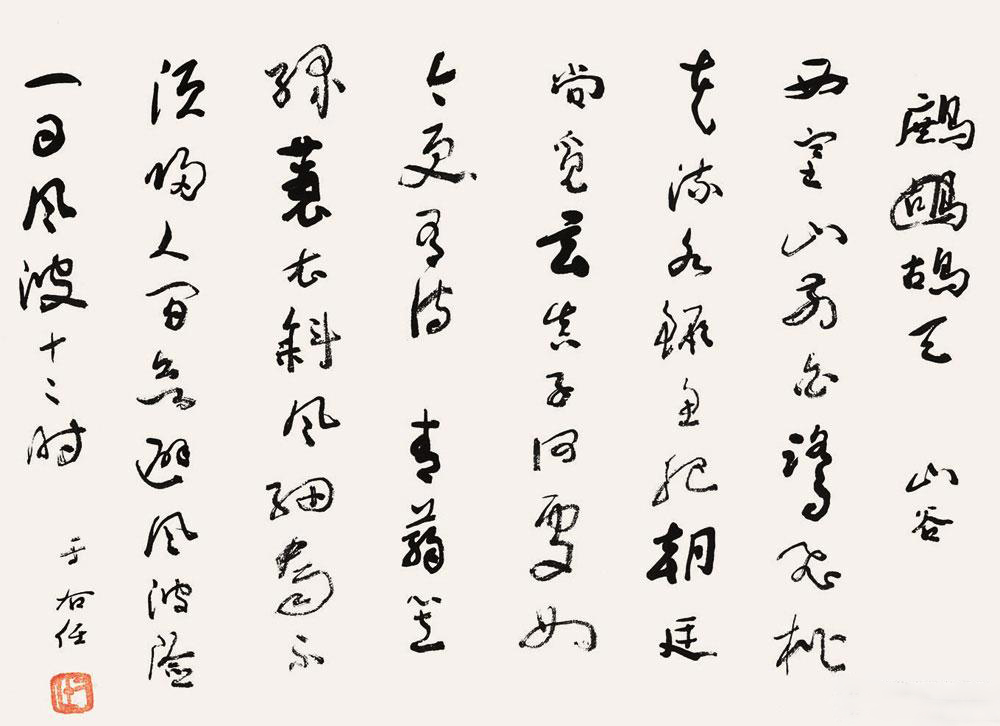 鷓鴣鴣天 山谷
西塞山前白鷺飛桃
花流水鱖魚肥朝廷
尚覓玄真子何處如
今更有詩 青蒻笠
綠蓑衣斜風細雨不
須歸人間無避風波險
一日風波十二時
于右任